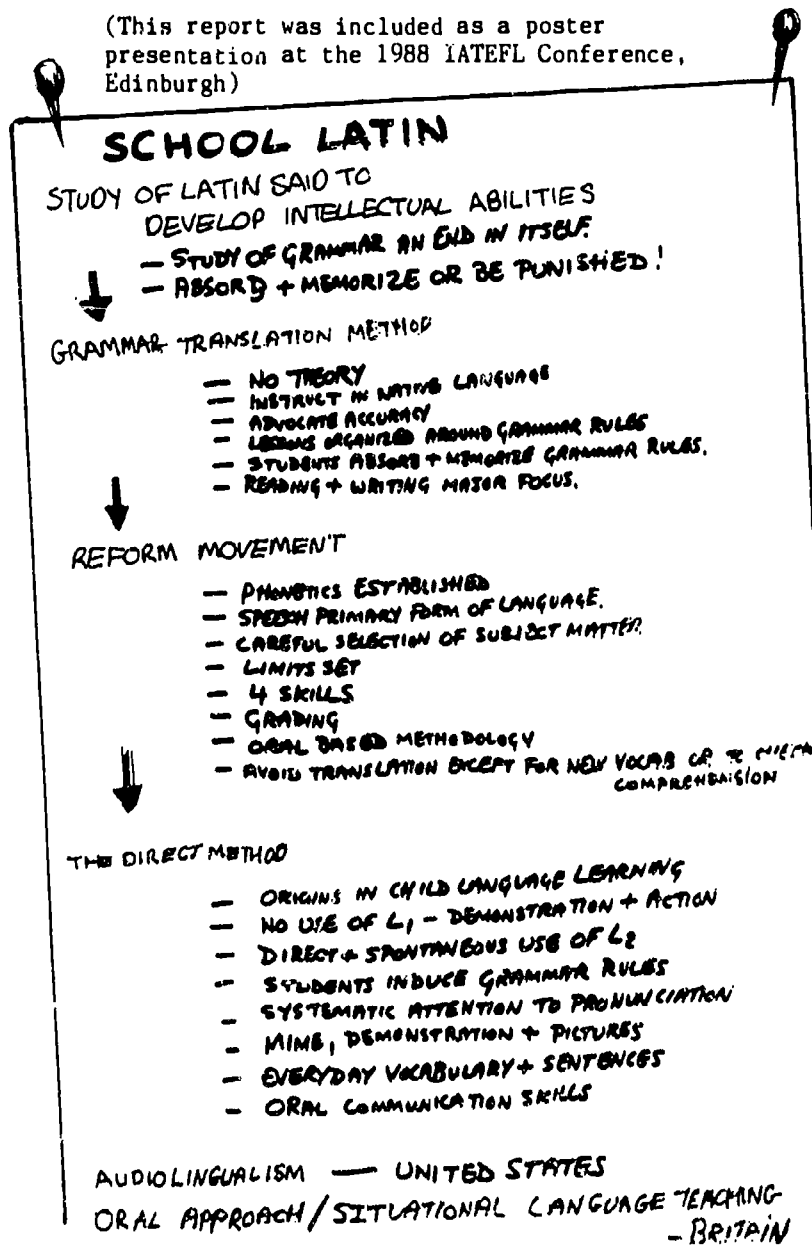 (This report was included as a poster
presentation at the 1988 IATEFL Conference,
Edinburgh)
SCHOOL LATIN
STUDY OF LATIN SAID TO
DEVELOP INTELLECTUAL ABILITIES
— STUDY OF GRAMMAR AN END IN ITSELF.
— ABSORB + MEMORIZE OR BE PUNISHED!
GRAMMAR TRANSLATION METHOD
— NO THEORY
— INSTRUCT IN NATIVE LANGUAGE
— ADVOCATE ACCURACY
— LESSONS ORGANIZED AROUND GRAMMAR RULES
— STUDENTS ABSORB + MEMORIZE GRAMMAR RULES.
— READING + WRITING MAJOR FOCUS.
REFORM MOVEMENT
— PHONETICS ESTABLISHED
— SPEECH PRIMARY FORM OF LANGUAGE.
— CAREFUL SELECTION OF SUBJECT MATTER.
— LIMITS SET
— 4 SKILLS
— GRADING
— ORAL BASED METHODOLOGY
— AVOID TRANSLATION EXCEPT FOR NEW VOCAB OR
COMPREHENSION
THE DIRECT METHOD
— ORIGINS IN CHILD LANGUAGE LEARNING
— NO USE OF L1 — DEMONSTRATION + ACTION
— DIRECT + SPONTANEOUS USE OF L2
— STUDENTS INDUCE GRAMMAR RULES
— SYSTEMATIC ATTENTION TO PRONUNCIATION
— MIME, DEMONSTRATION + PICTURES
— EVERYDAY VOCABULARY + SENTENCES
— ORAL COMMUNICATION SKILLS
AUDIOLINGUALISM — UNITED STATES
ORAL APPROACH / SITUATIONAL LANGUAGE TEACHING
— BRITAIN